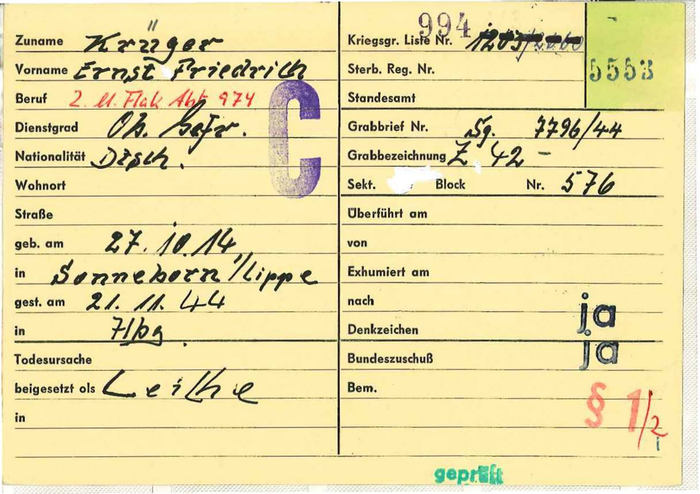 Zuname Krüger
Vorname Ernst Friedrich
Beruf 2. u. Flak Abt 974
Dienstgrad Ob. Gefr.
Nationalität Dtsch.
Wohnort
Straße
geb. am 27.10.14
in Sonneborn/Lippe
gest. am 21.11.44
in Hbg
Todesursache
beigesetzt als Leiche
in
C
994
Kriegsgr. Liste Nr.
Sterb. Reg. Nr.
5553
Standesamt
Grabbrief Nr. Sg. 7796/44
Grabbezeichnung Z 42 -
Sekt. Block Nr. 576
Überführt am
von
Exhumiert am
nach
Denkzeichen ja
Bundeszuschuß ja
Bem.
§ 1/2
geprüft